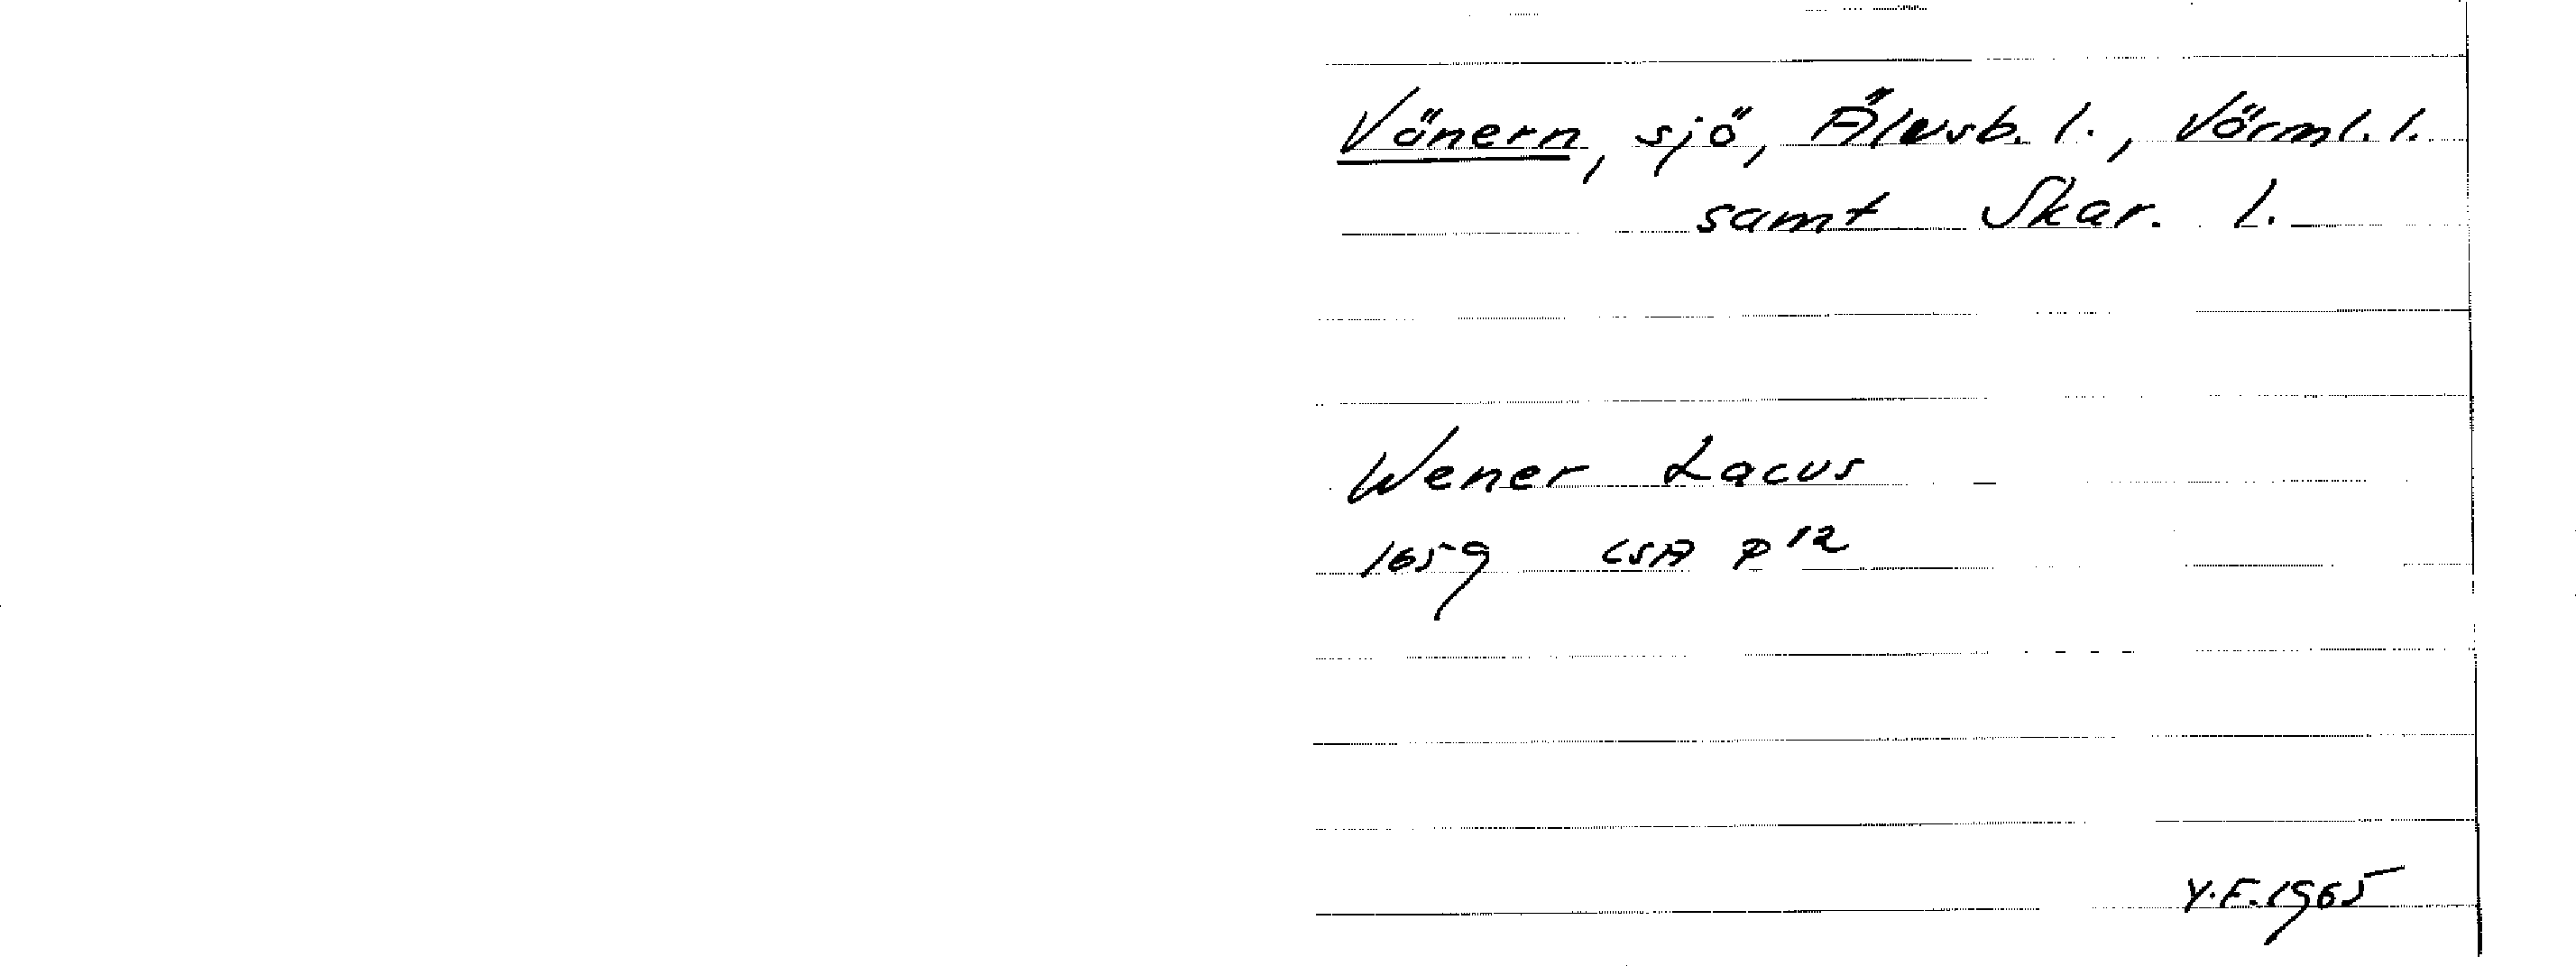 Vänern, sjö, Älvsb. l., Värml. l.
samt Skar. l.
Wener Lacus
1659 LSA P 12
Y.F. 1965